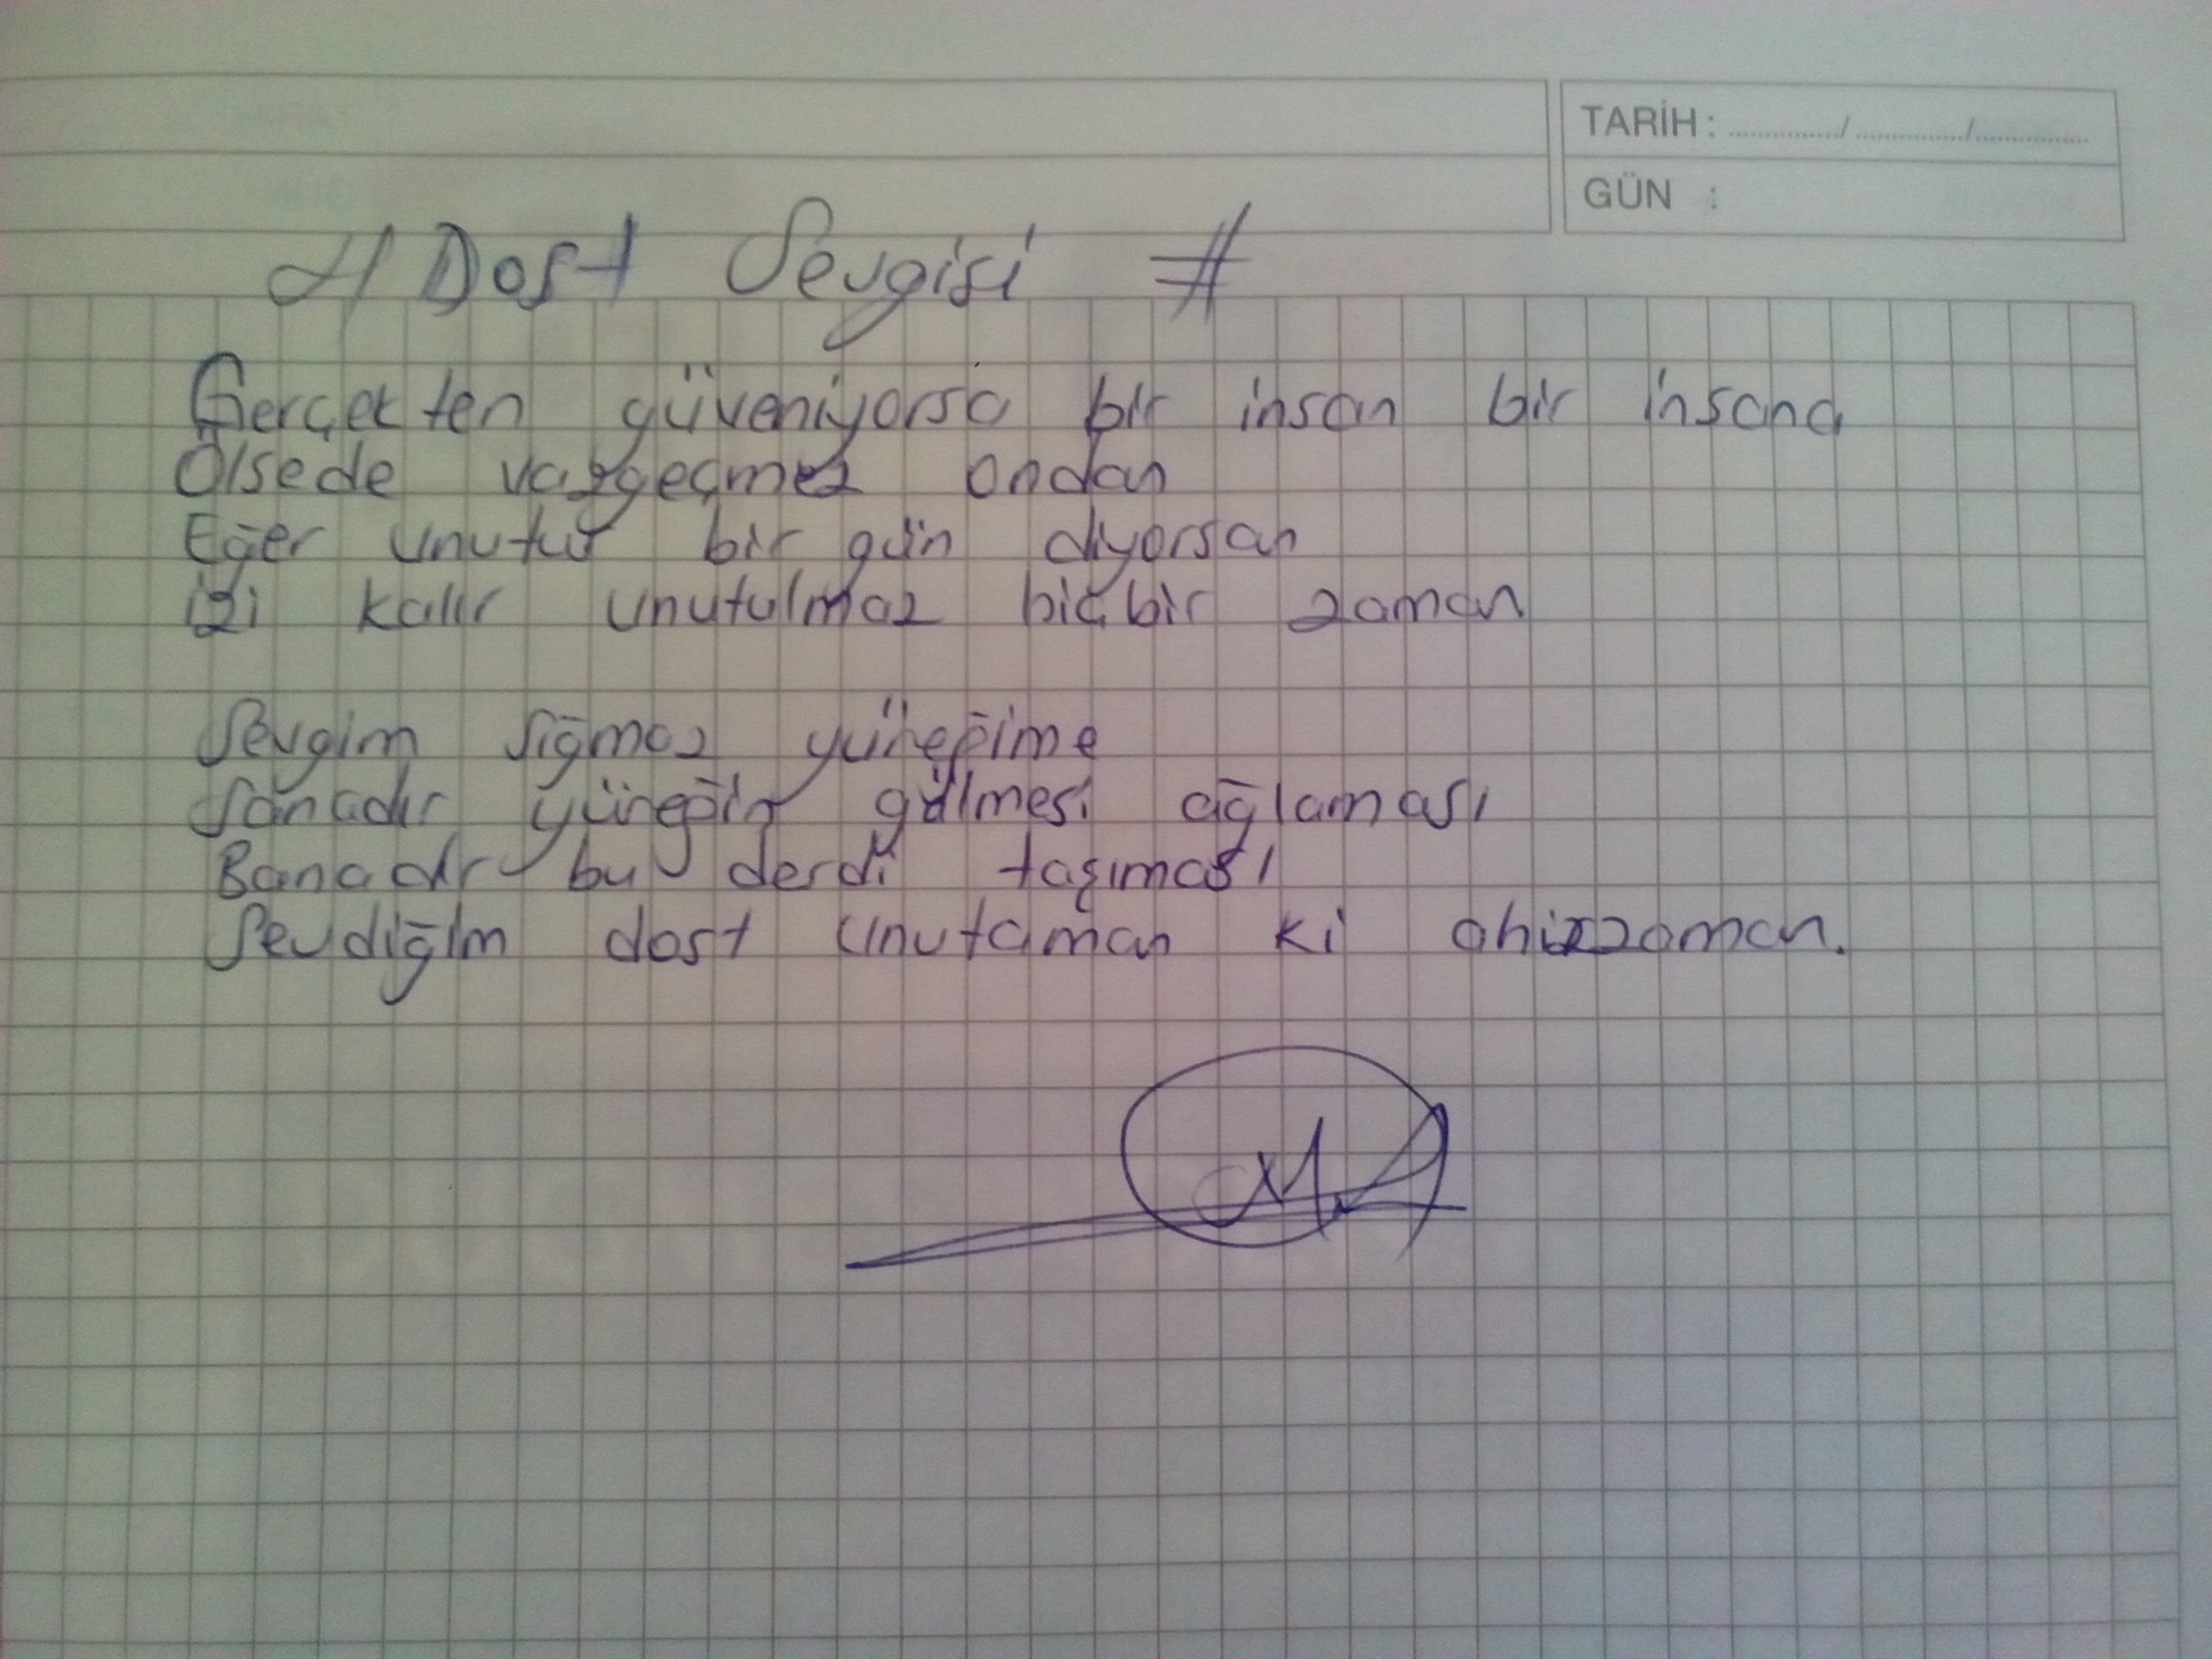 TARİH : ............/............/............
GÜN :
# Dost Sevgisi #
Gerçekten güveniyorsa bir insan bir insana
Ölsede vazgeçmez ondan
Eğer unutur bir gün diyorsan
izi kalır unutulmaz hiçbir zaman
Sevgim sığmaz yüreğime
Sanadır yüreğin gülmesi ağlaması
Banadır bu derdi taşıması
Sevdiğim dost unutaman ki ahirzaman.